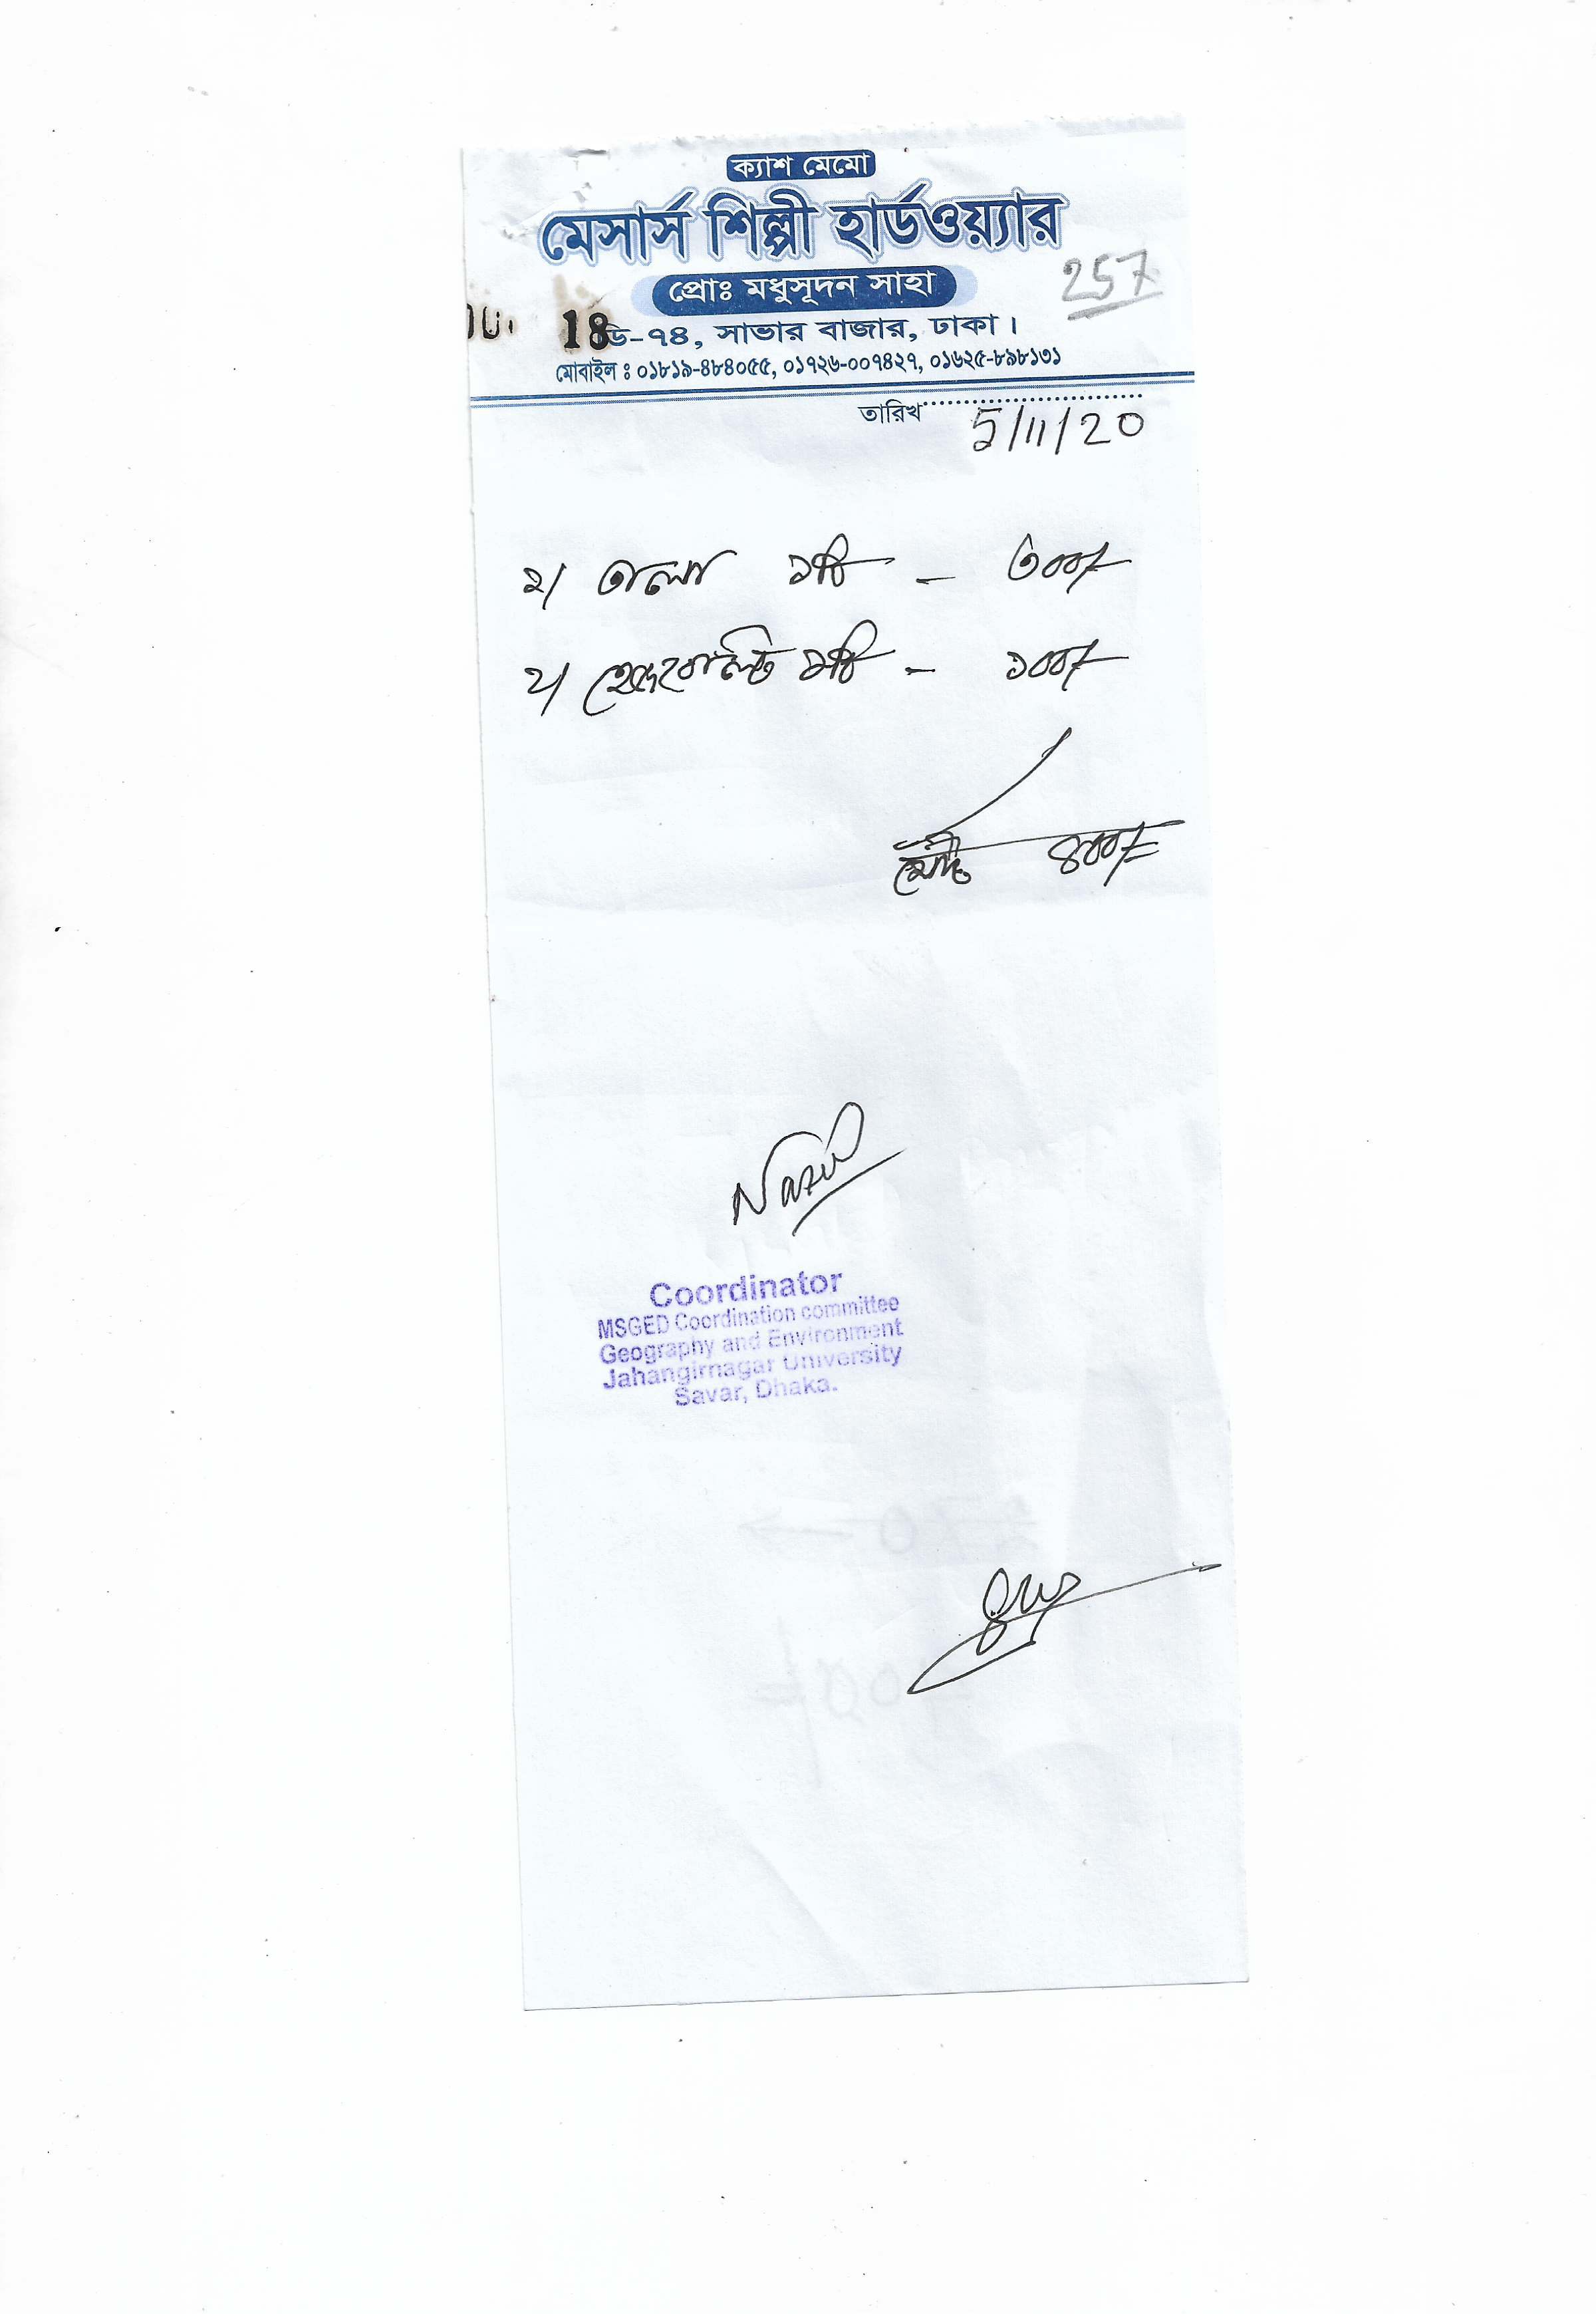 ক্যাশ মেমো
মেসার্স শিল্পী হার্ডওয়্যার
প্রোঃ মধুসূদন সাহা
257
18
ডি-৭৪, সাভার বাজার, ঢাকা।
মোবাইল : ০১৮১৯-৪৮৪০৫৫, ০১৭২৬-০০৭৪২৭, ০১৬২৫-৮৯৮১৩১
তারিখ
5/11/20
১/ তালা ১টি - ৩০০/-
২/ ১টি - ১০০/-
মোট ৪০০/=
Coordinator
MSGED Coordination committee
Geography and Environment
Jahangirnagar University
Savar, Dhaka.